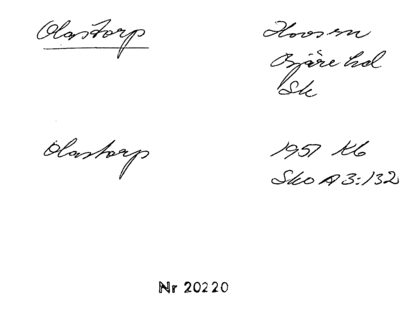 Olastorp
Hovs sn
Bjäre hd
Sk
Olastorp
1951 Kb
Sko A3:132
Nr 20220